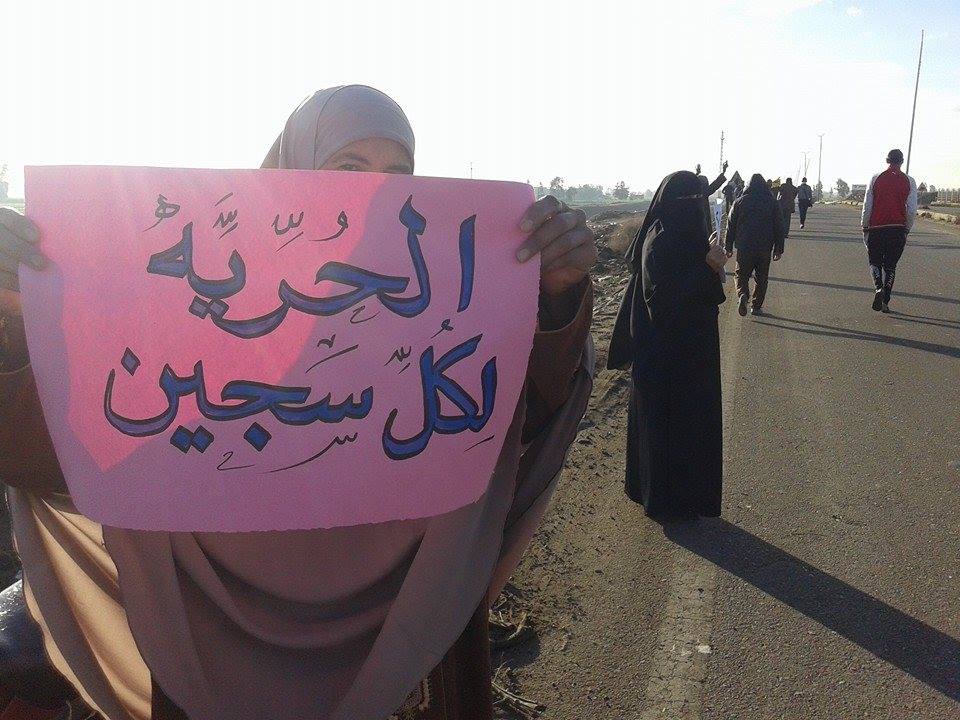 الحُرِّيَّه
لِكُلِّ سَجين